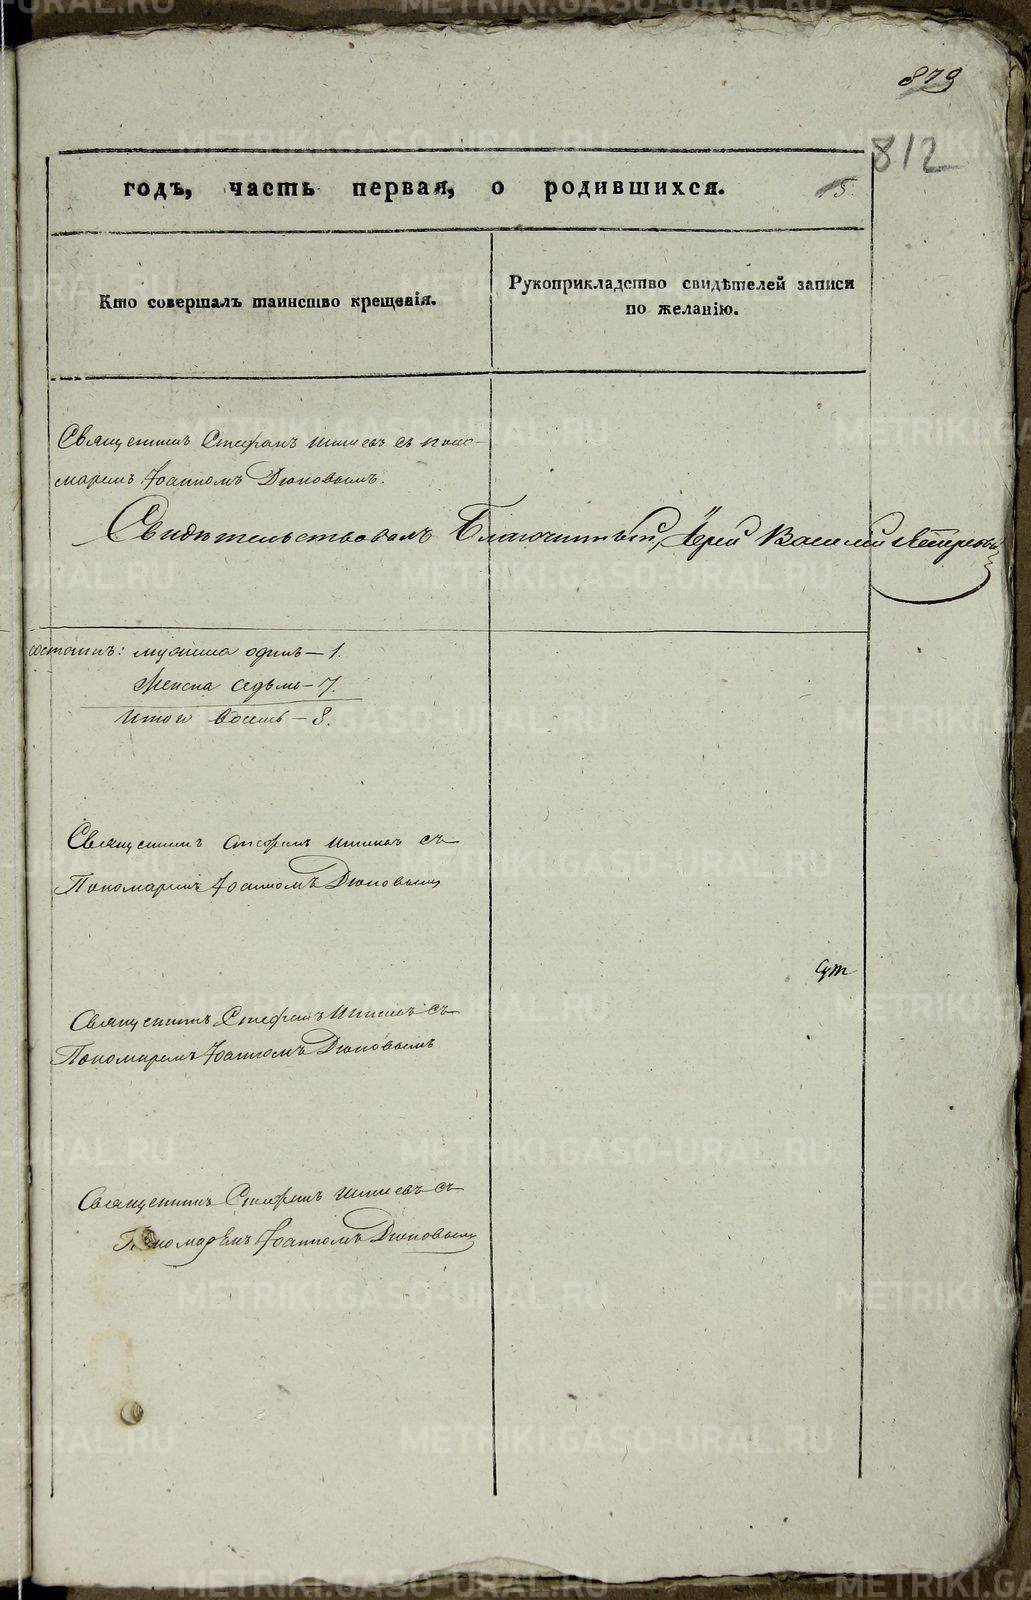 879
812
годъ, часть первая, о родившихся.
5.
Кто совершалъ таинство крещенія.
Рукоприкладство свидѣтелей записи
по желанію.
Священникъ Стефанъ съ Поно-
маремъ Іоанномъ Дюковымъ.
Свидѣтельствовалъ Благочинный, Іерей Василій
состоитъ: мужеска одинъ – 1.
Женска седьмь – 7.
Итого восемь – 8.
Священникъ Стефанъ съ
Пономаремъ Іоанномъ Дюковымъ
Священникъ Стефанъ съ
Пономаремъ Іоанномъ Дюковымъ
Священникъ Стефанъ съ
Пономаремъ Іоанномъ Дюковымъ
METRIKI.GASO-URAL.RU